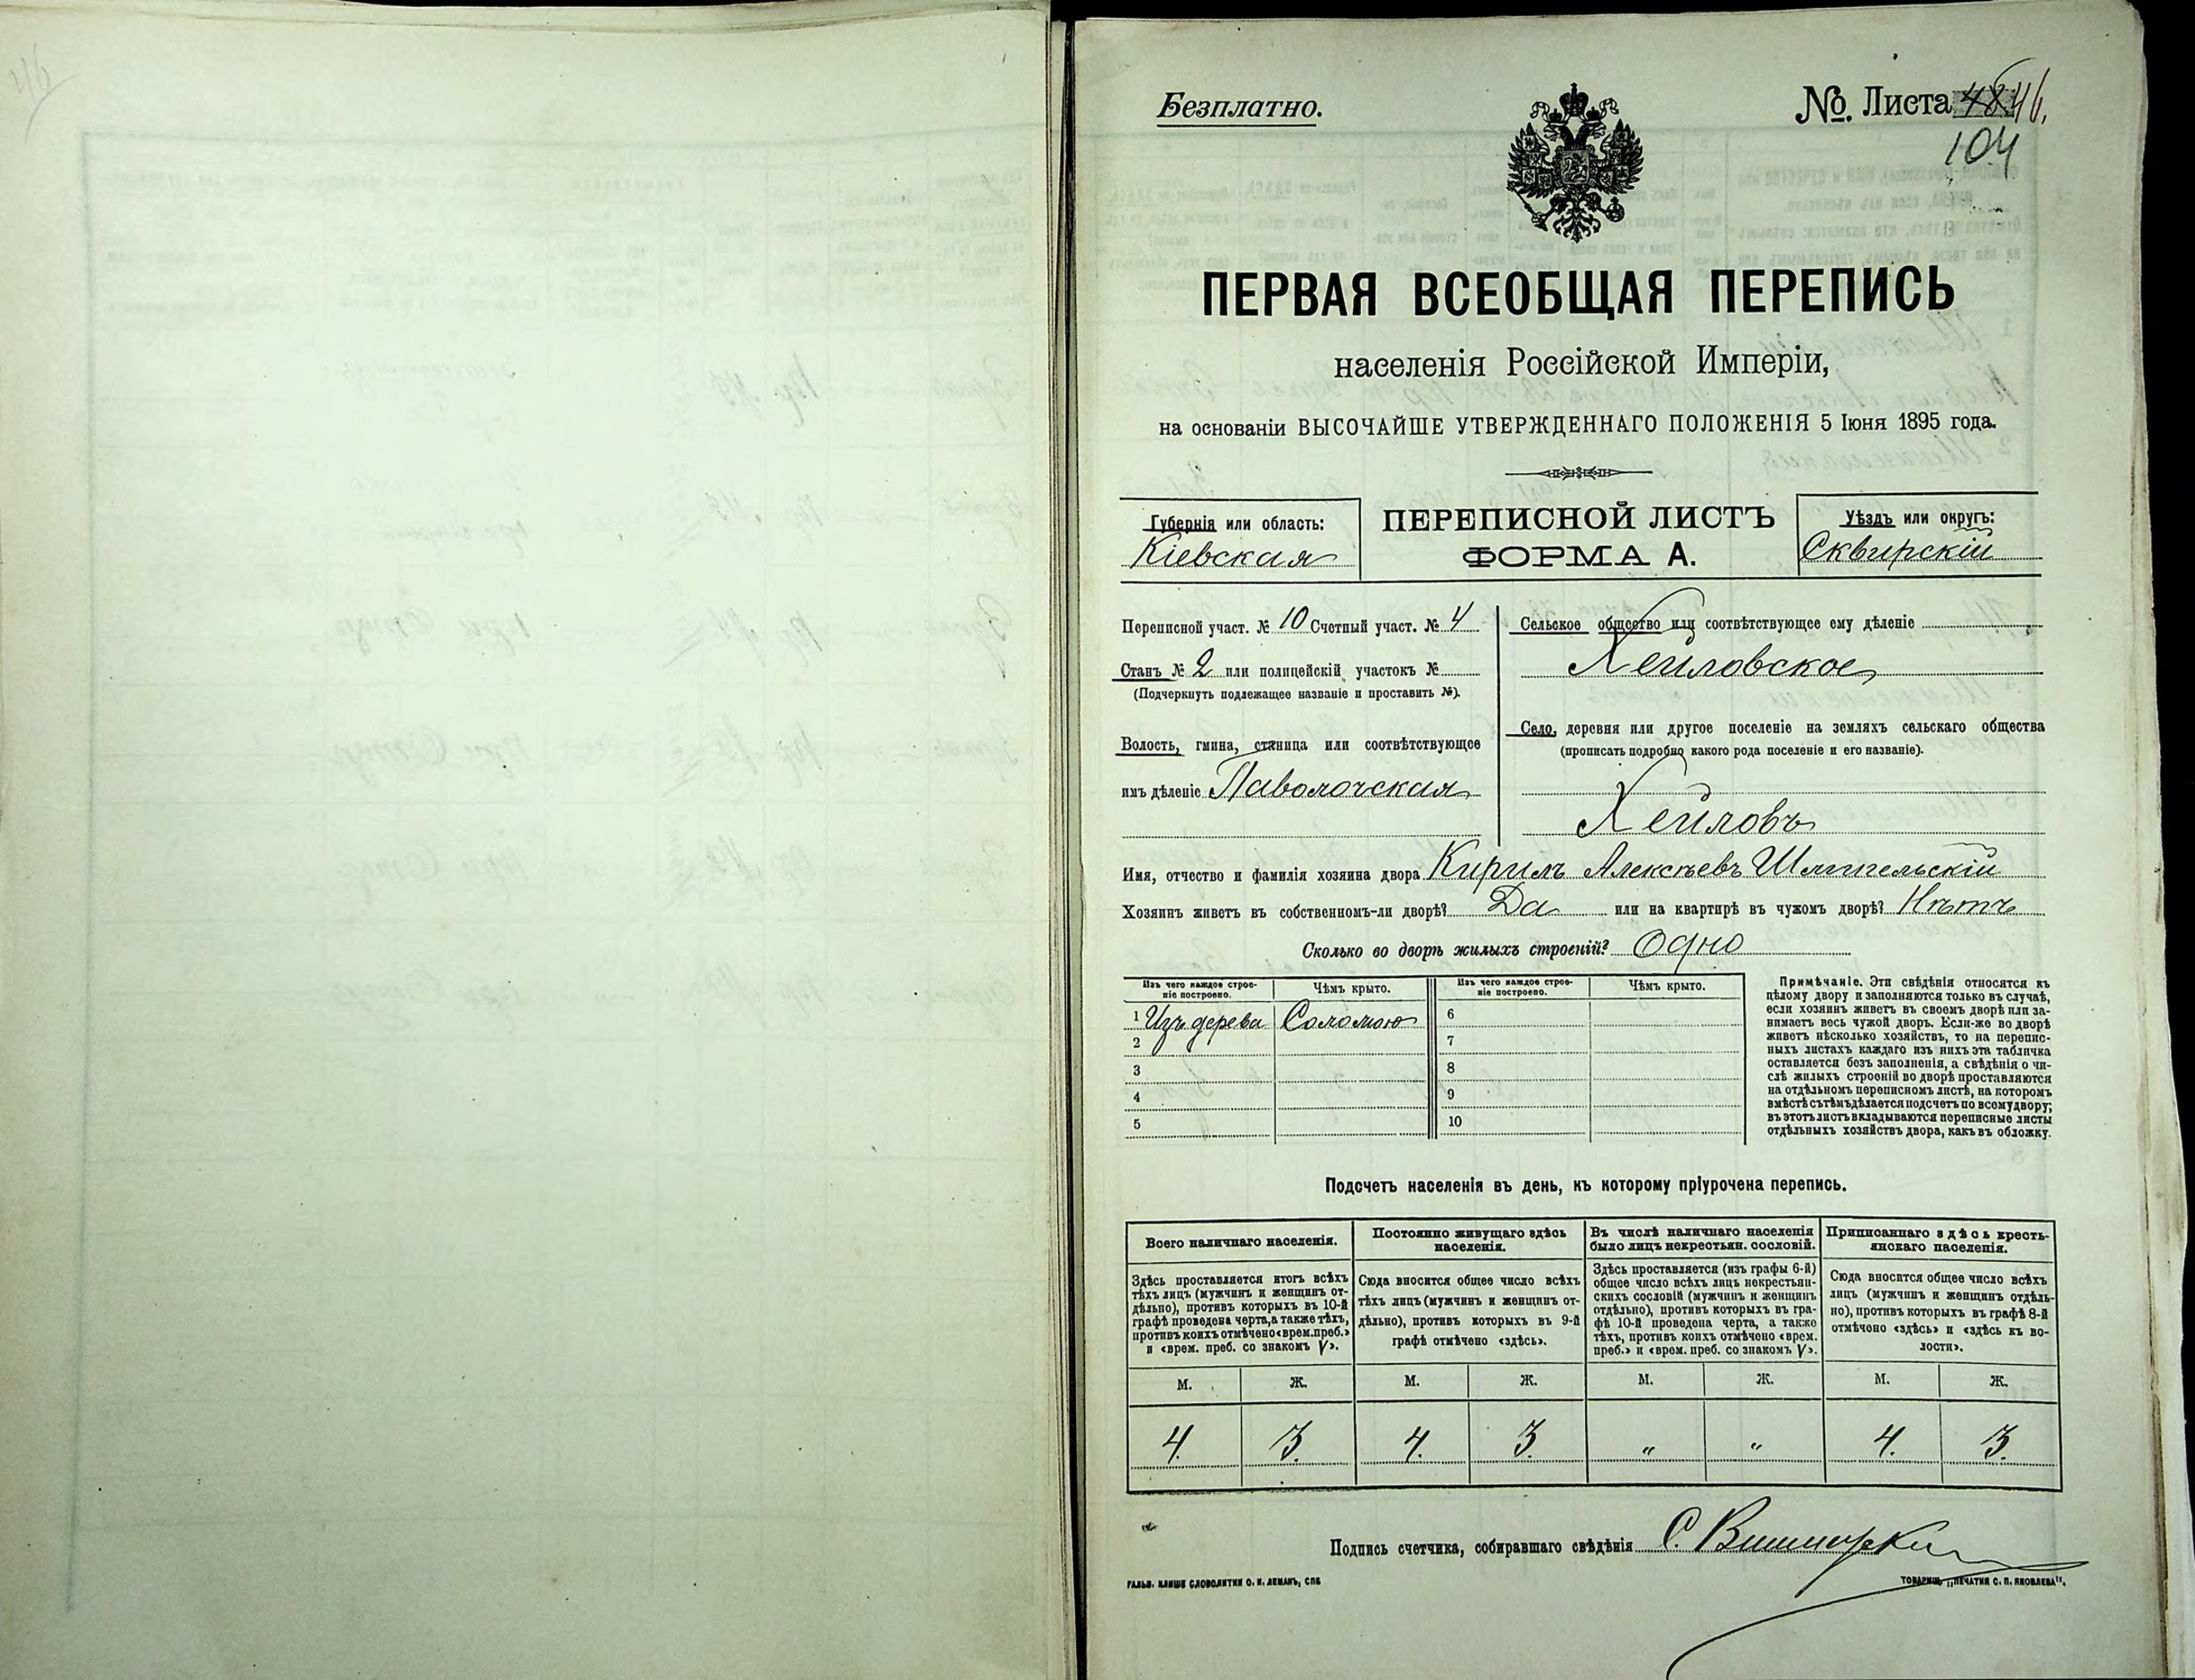 Безплатно.
№. Листа 46.
104
ПЕРВАЯ ВСЕОБЩАЯ ПЕРЕПИСЬ
населенія Россійской Имперіи,
на основаніи ВЫСОЧАЙШЕ УТВЕРЖДЕННАГО ПОЛОЖЕНІЯ 5 Іюня 1895 года.
Губернія или область:
Кіевская
ПЕРЕПИСНОЙ ЛИСТЪ
ФОРМА А.
Уѣздъ или округъ:
Сквирскій
Переписной участ. № 10 Счетный участ. № 4
Станъ № 2 или полицейскій участокъ №
(Подчеркнуть подлежащее названіе и проставить №).
Волость, гмина, станица или соотвѣтствующее
имъ дѣленіе Паволочская
Сельское общество или соотвѣтствующее ему дѣленіе
Хейловское
Село, деревня или другое поселеніе на земляхъ сельскаго общества
(прописать подробно какого рода поселеніе и его названіе).
Хейловъ
Имя, отчество и фамилія хозяина двора Кирилъ Алексѣевъ Шляпельскій
Хозяинъ живетъ въ собственномъ-ли дворѣ? Да или на квартирѣ въ чужомъ дворѣ? Нѣтъ
Сколько во дворѣ жилыхъ строеній? Одно
Изъ чего каждое строе-
ніе построено.
Чѣмъ крыто.
Изъ чего каждое строе-
ніе построено.
Чѣмъ крыто.
1 Изъ дерева Соломою
2
3
4
5
6
7
8
9
10
Примѣчаніе. Эти свѣдѣнія относятся къ
цѣлому двору и заполняются только въ случаѣ,
если хозяинъ живетъ въ своемъ дворѣ или за-
нимаетъ весь чужой дворъ. Если-же во дворѣ
живетъ нѣсколько хозяйствъ, то на перепис-
ныхъ листахъ каждаго изъ нихъ эта табличка
оставляется безъ заполненія, а свѣдѣнія о чи-
слѣ жилыхъ строеній во дворѣ проставляются
на отдѣльномъ переписномъ листѣ, на которомъ
вмѣстѣ съ тѣмъ дѣлается подсчетъ по всему двору;
въ этотъ листъ вкладываются переписные листы
отдѣльныхъ хозяйствъ двора, какъ въ обложку.
Подсчетъ населенія въ день, къ которому пріурочена перепись.
Всего наличнаго населенія.
Здѣсь проставляется итогъ всѣхъ
тѣхъ лицъ (мужчинъ и женщинъ от-
дѣльно), противъ которыхъ въ 10-й
графѣ проведена черта, а также тѣхъ,
противъ коихъ отмѣчено «врем. преб.»
и «врем. преб. со знакомъ V».
Постоянно живущаго здѣсь
населенія.
Сюда вносится общее число всѣхъ
тѣхъ лицъ (мужчинъ и женщинъ от-
дѣльно), противъ которыхъ въ 9-й
графѣ отмѣчено «здѣсь».
Въ числѣ наличнаго населенія
было лицъ некрестьян. сословій.
Здѣсь проставляется (изъ графы 6-й)
общее число всѣхъ лицъ некрестьян-
скихъ сословій (мужчинъ и женщинъ
отдѣльно), противъ которыхъ въ гра-
фѣ 10-й проведена черта, а также
тѣхъ, противъ коихъ отмѣчено «врем.
преб.» и «врем. преб. со знакомъ V».
Приписаннаго здѣсь кресть-
янскаго населенія.
Сюда вносится общее число всѣхъ
лицъ (мужчинъ и женщинъ отдѣль-
но), противъ которыхъ въ графѣ 8-й
отмѣчено «здѣсь» и «здѣсь къ во-
лости».
М. Ж. М. Ж. М. Ж. М. Ж.
4. 3. 4. 3. " " 4. 3.
Подпись счетчика, собиравшаго свѣдѣнія С.
ГАЛЬВ. КЛИШЕ СЛОВОЛИТНИ О. И. ЛЕМАНЪ, СПБ
ТОВАРИЩ. „ПЕЧАТНЯ С. П. ЯКОВЛЕВА".